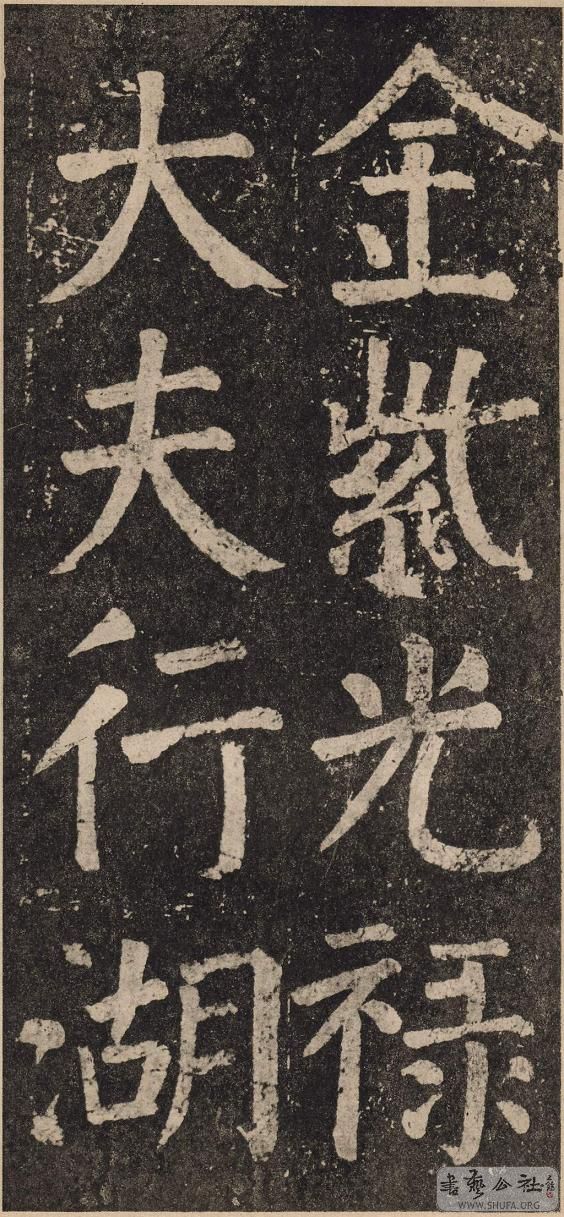 金紫光禄
大夫行湖
書藝公社
WWW.SHUFA.ORG